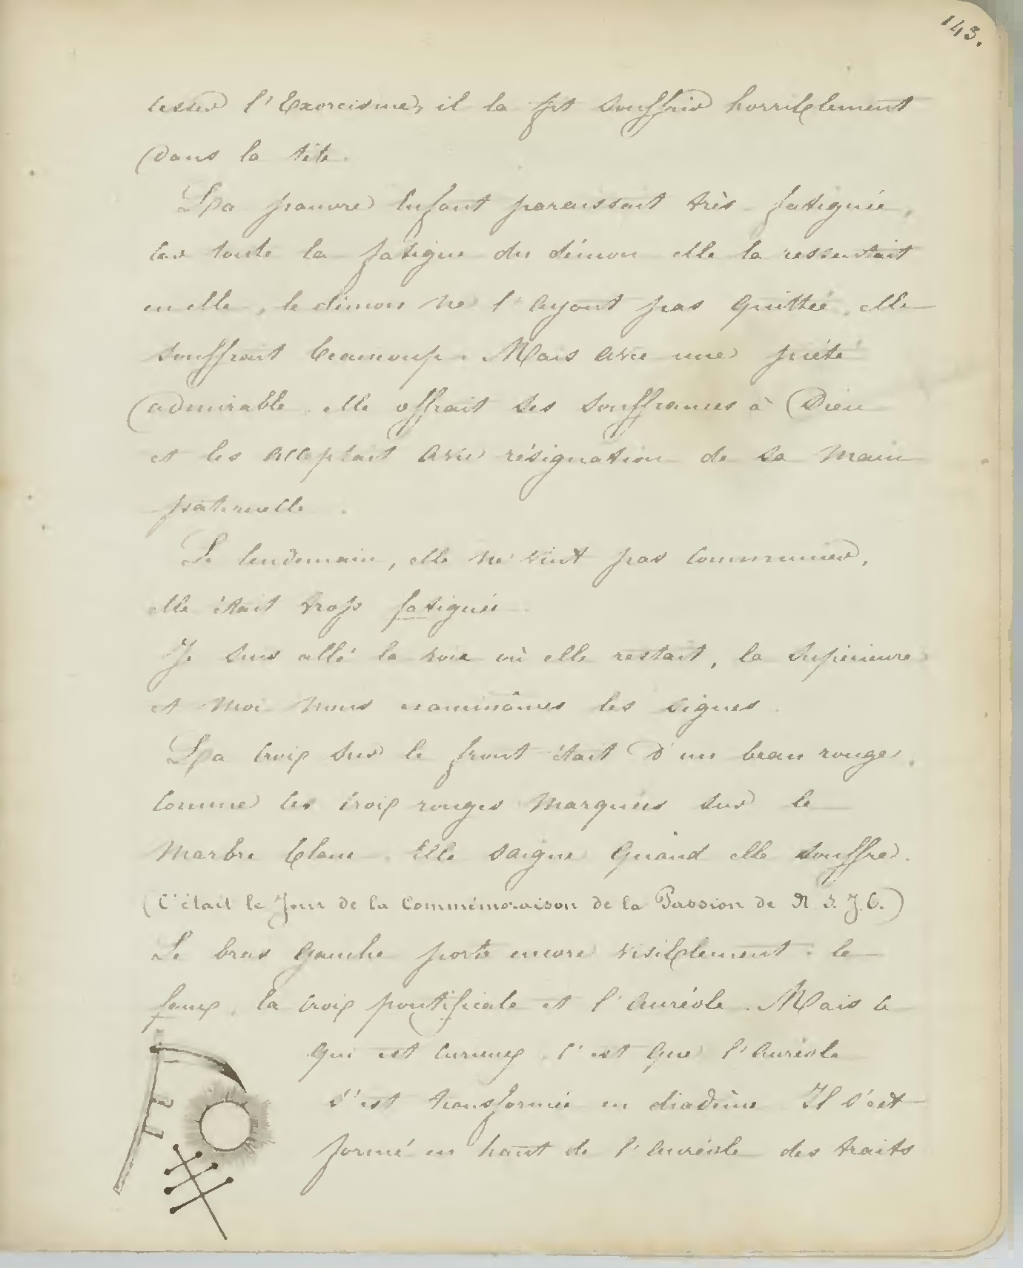 143.
cesser l'Exorcisme, il la fit souffrir horriblement
dans la tête.
La pauvre Enfant paraissait très fatiguée,
car toute la fatigue du démon elle la ressentait
en elle, le démon ne l'ayant pas quittée, elle
souffrait beaucoup. Mais avec une piété
admirable, elle offrait ses souffrances à Dieu
et les acceptait avec résignation de sa main
paternelle.
Le lendemain, elle ne vint pas communier,
elle était trop fatiguée.
Je suis allé la voir où elle restait, la Supérieure
et moi nous examinâmes les signes.
La Croix sur le front était d'un beau rouge,
comme les croix rouges marquées sur le
marbre blanc. Elle saigne quand elle souffre.
(C'était le Jour de la Commémoraison de la Passion de N. S. J. C.)
Le bras gauche porte encore visiblement : la
faux, la croix pontificale et l'auréole. Mais ce
qui est curieux, c'est que l'auréole
s'est transformée en diadème. Il s'est
formé en haut de l'auréole des traits